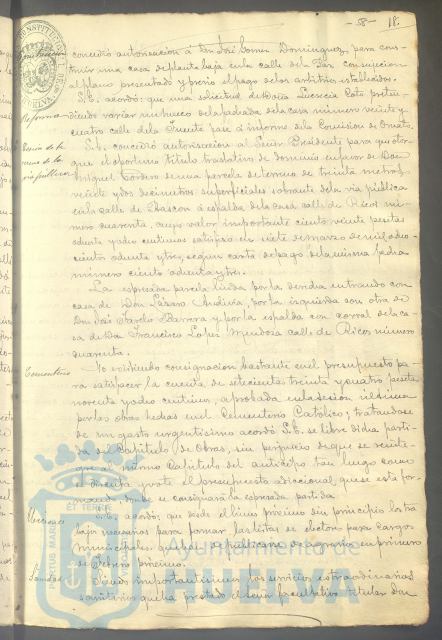 58 18.
concedió autorización á Don José Gomez Dominguez, para cons-
truir una casa de planta baja en la calle de la Paz con sujecion
al plano presentado y previo el pago de los arbitrios establecidos.
S.E. acordó: que una solicitud de Doña Lucrecia Coto preten-
diendo variar un hueco de la fachada de la casa número veinte y
cuatro calle de la Fuente pase á informe de la Comision de Ornato.
S.E. concedió autorizacion al Señor Presidente para que otor-
gue el oportuno título traslativo de dominio en favor de Don
Miguel Cordero de una parcela de terreno de treinta metros
veinte y dos decimetros superficiales sobrante de la via publica
en la calle de Rascon á espalda de la casa calle de Ricos nú-
mero cuarenta, cuyo valor importante ciento veinte pesetas
ochenta y ocho centimos satisfizo en siete de marzo de mil ocho-
cientos ochenta y tres, segun carta de pago de la misma fecha
número ciento ochenta y tres.
La espresada parcela linda por la derecha entrando con
casa de Don Lázaro, por la izquierda con otra de
Don José Barrera y por la espalda con corral de la ca-
sa de Don Francisco Lopez Mendoza calle de Ricos número
cuarenta.
Cementerio
No existiendo consignacion bastante en el presupuesto pa-
ra satisfacer la cuenta de setecientas treinta y cuatro pesetas
noventa y ocho centimos, aprobada en la sesion última
por las obras hechas en el Cementerio Católico; tratandose
de un gasto urgentisimo acordó S.E. se libre dicha parti-
da del Capítulo de Obras, sin perjuicio de que se reinte-
gre al mismo Capítulo del anticipo tan luego como
el presupuesto adicional, que se está for-
mando, donde se consignará la espresada partida.
acordó: que desde el lunes próximo den principio los tra-
bajos necesarios para formar las listas de electores para cargos
municipales, que deben publicarse de en primero
de Febrero próximo.
Sanidad
Siendo importantisimos los servicios extraordinarios
sanitarios que ha prestado el Señor facultativo titular Don
Ayuntamiento de
HUELVA
PORTUS MARIS ET TERRE